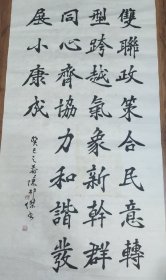 雙聯政策合民意轉
型跨越氣象新幹群
同心齊協力和諧發
展小康成
癸巳之春